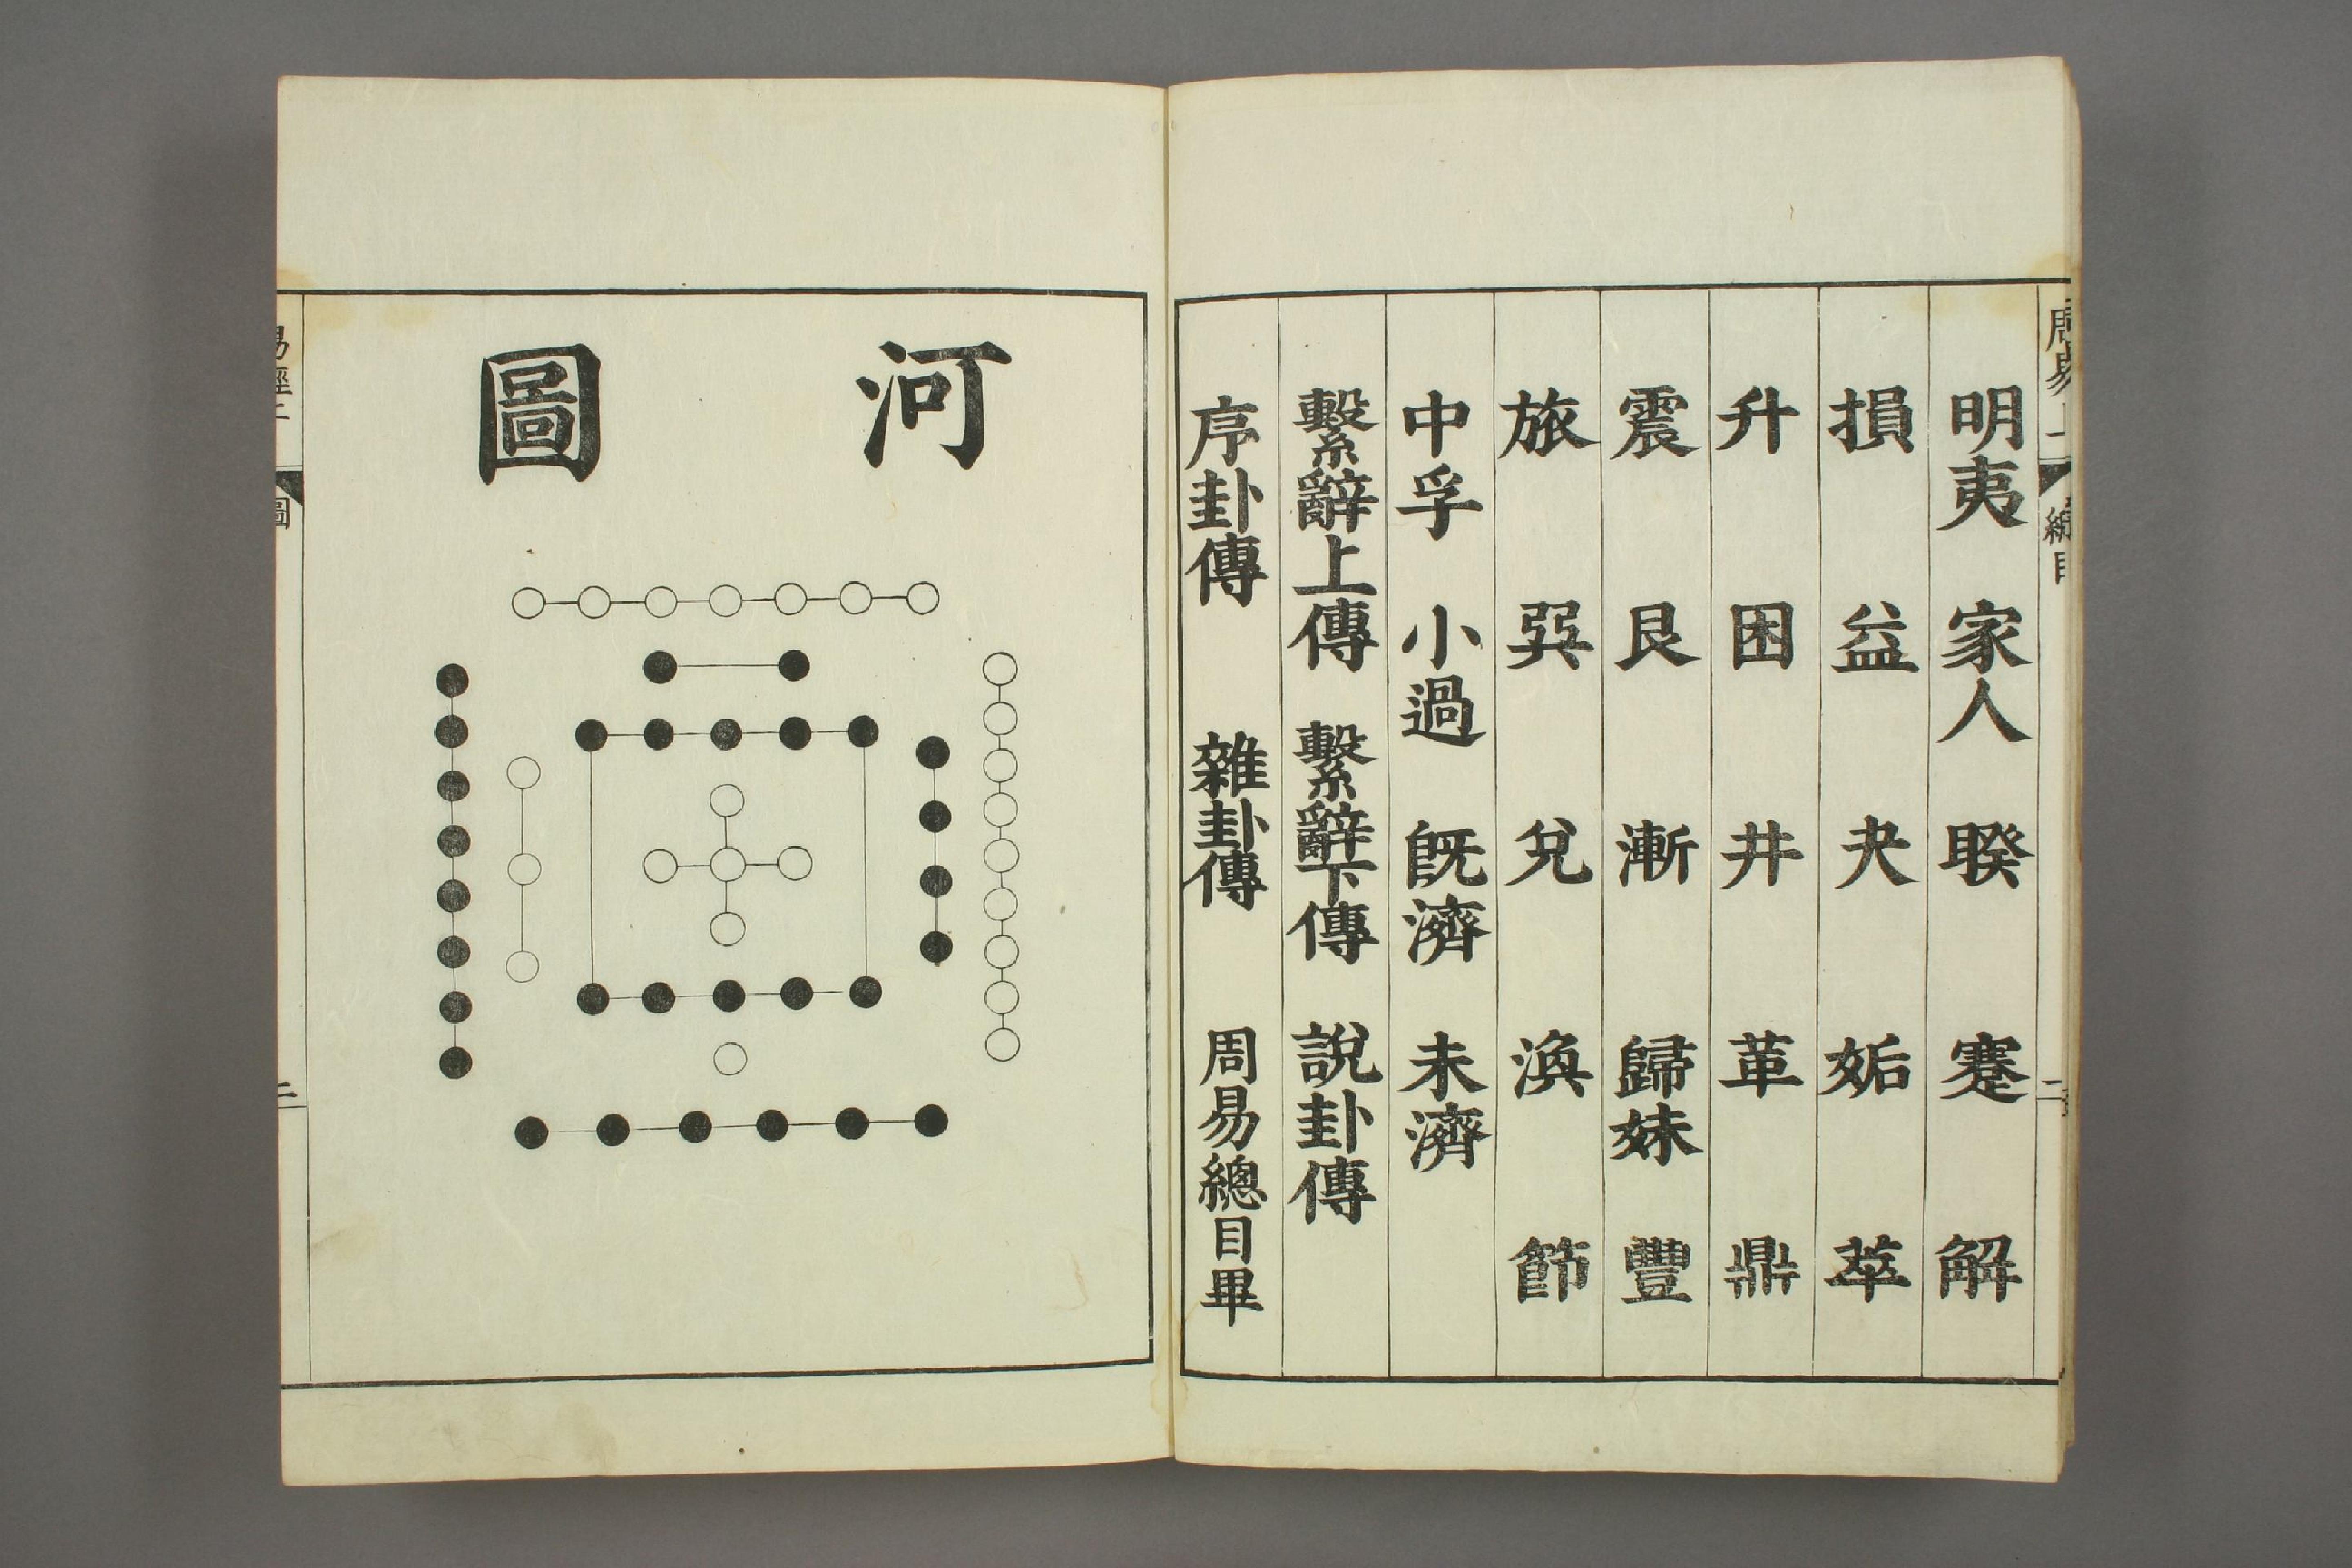 明夷 家人 睽 蹇 解
損 益 夬 姤 萃
升 困 井 革 鼎
震 艮 漸 歸妹 豐
旅 巽 兌 渙 節
中孚 小過 旣濟 未濟
繫辭上傳 繫辭下傳 說卦傳
序卦傳 雜卦傳 周易總目畢
河圖